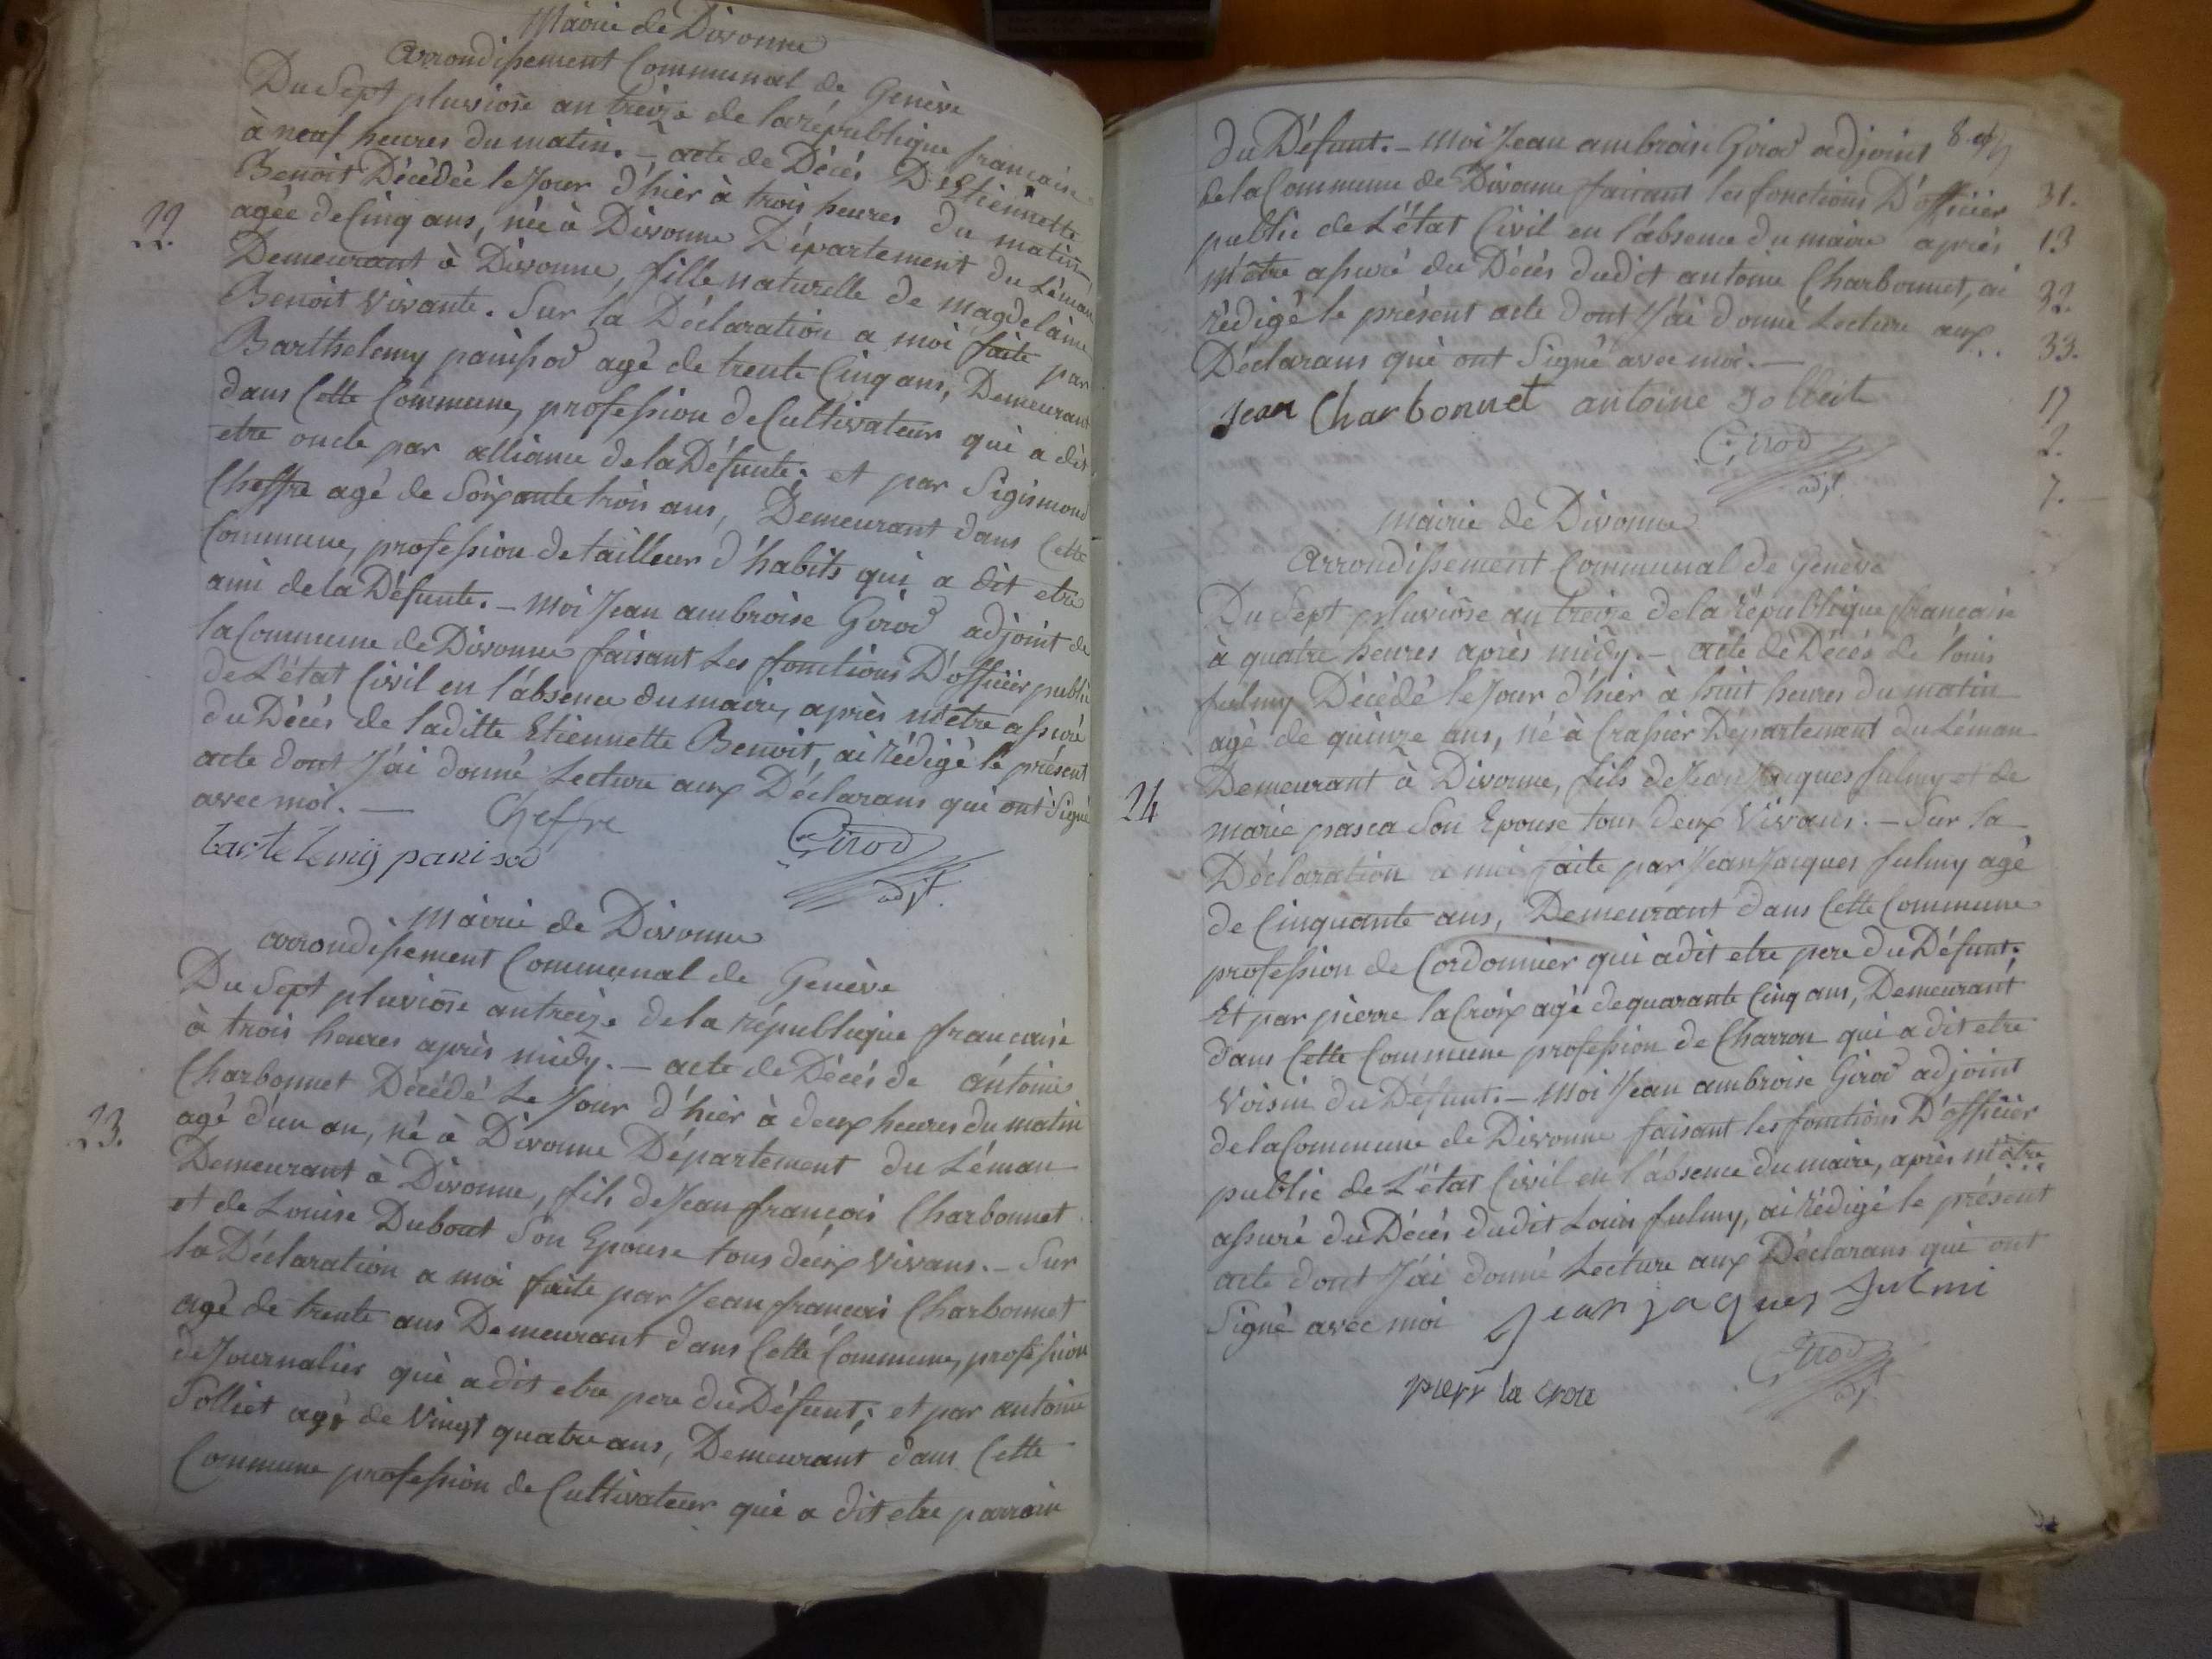 Mairie de Divonne
Arrondissement Communal de Genève
Du Sept pluviose an treize de la république francaise
à neuf heures du matin. – acte de Décés D'Etiennette
Benoit Décédée le Jour d'hier à trois heures du matin
22.
agée de Cinq ans, née à Divonne Département du Léman
Demeurant à Divonne, fille naturelle de Magdelaine
Benoit Vivante. Sur la Déclaration a moi faite par
Barthelemy panissod agé de trente Cinq ans, Demeurant
dans Cette Commune, profession de Cultivateur qui a dit
etre oncle par alliance de la Défunte; et par Sigismond
Cheffre agé de Soixante trois ans, Demeurant dans Cette
Commune, profession de tailleur d'habits qui a dit etre
ami de la Défunte. – Moi Jean ambroise Girod adjoint de
la Commune de Divonne faisant Les fonctions D'officier public
de L'état Civil en l'absence du maire, après m'être assuré
du Décés de laditte Etiennette Benoit, ai rédigé le présent
acte dont J'ai donné Lecture aux Déclarans qui ont Signé
avec moi. – Cheffre
Girod
adjt.
Mairie de Divonne
arrondissement Communal de Genève
Du Sept pluviose an treize de la république francaise
à trois heures après midy. – acte de Décés de antoine
Charbonnet Décédé Le Jour d'hier à deux heures du matin
23.
agé d'un an, né à Divonne Département du Léman
Demeurant à Divonne, fils de Jean francois Charbonnet
et de Louise Dubout Son Epouse tous deux Vivans. – Sur
la Déclaration a moi faite par Jean francois Charbonnet
agé de trente ans Demeurant dans Cette Commune, profession
de Journalier qui a dit etre pere du Défunt; et par antoine
Solliet agé de Vingt quatre ans, Demeurant dans Cette
Commune profession de Cultivateur qui a dit etre parrain
du Défunt. – Moi Jean ambroise Girod adjoint
de la Commune de Divonne faisant les fonctions D'officier
public de L'état Civil en l'absence du maire après
m'être assuré du Décés dudit antoine Charbonnet, ai
rédigé le présent acte dont J'ai donné Lecture aux
Déclarans qui ont Signé avec moi. –
31.
13
32.
33.
17
2.
7.
Jean Charbonnet antoine
Girod
adjt.
Mairie de Divonne
Arrondissement Communal de Genève
Du Sept pluviose an treize de la république francaise
à quatre heures après midy. – acte de Décés de louis
fulmy Décédé le Jour d'hier à huit heures du matin
agé de quinze ans, né à Crassier Département du Léman
24
Demeurant à Divonne, fils de Jean Jacques fulmy et de
marie pasca Son Epouse tous deux Vivans. – Sur la
Déclaration a moi faite par Jean Jacques fulmy agé
de Cinquante ans, Demeurant dans Cette Commune
profession de Cordonnier qui a dit etre pere du Défunt;
Et par pierre la Croix agé de quarante Cinq ans, Demeurant
dans Cette Commune profession de Charron qui a dit etre
Voisin du Défunt. – Moi Jean ambroise Girod adjoint
de la Commune de Divonne faisant les fonctions D'officier
public de L'état Civil en l'absence du maire, après m'être
assuré du Décés dudit Louis fulmy, ai rédigé le présent
acte dont J'ai donné Lecture aux Déclarans qui ont
Signé avec moi Jean jaques fulmi
Girod
adjt.
pierr la croie